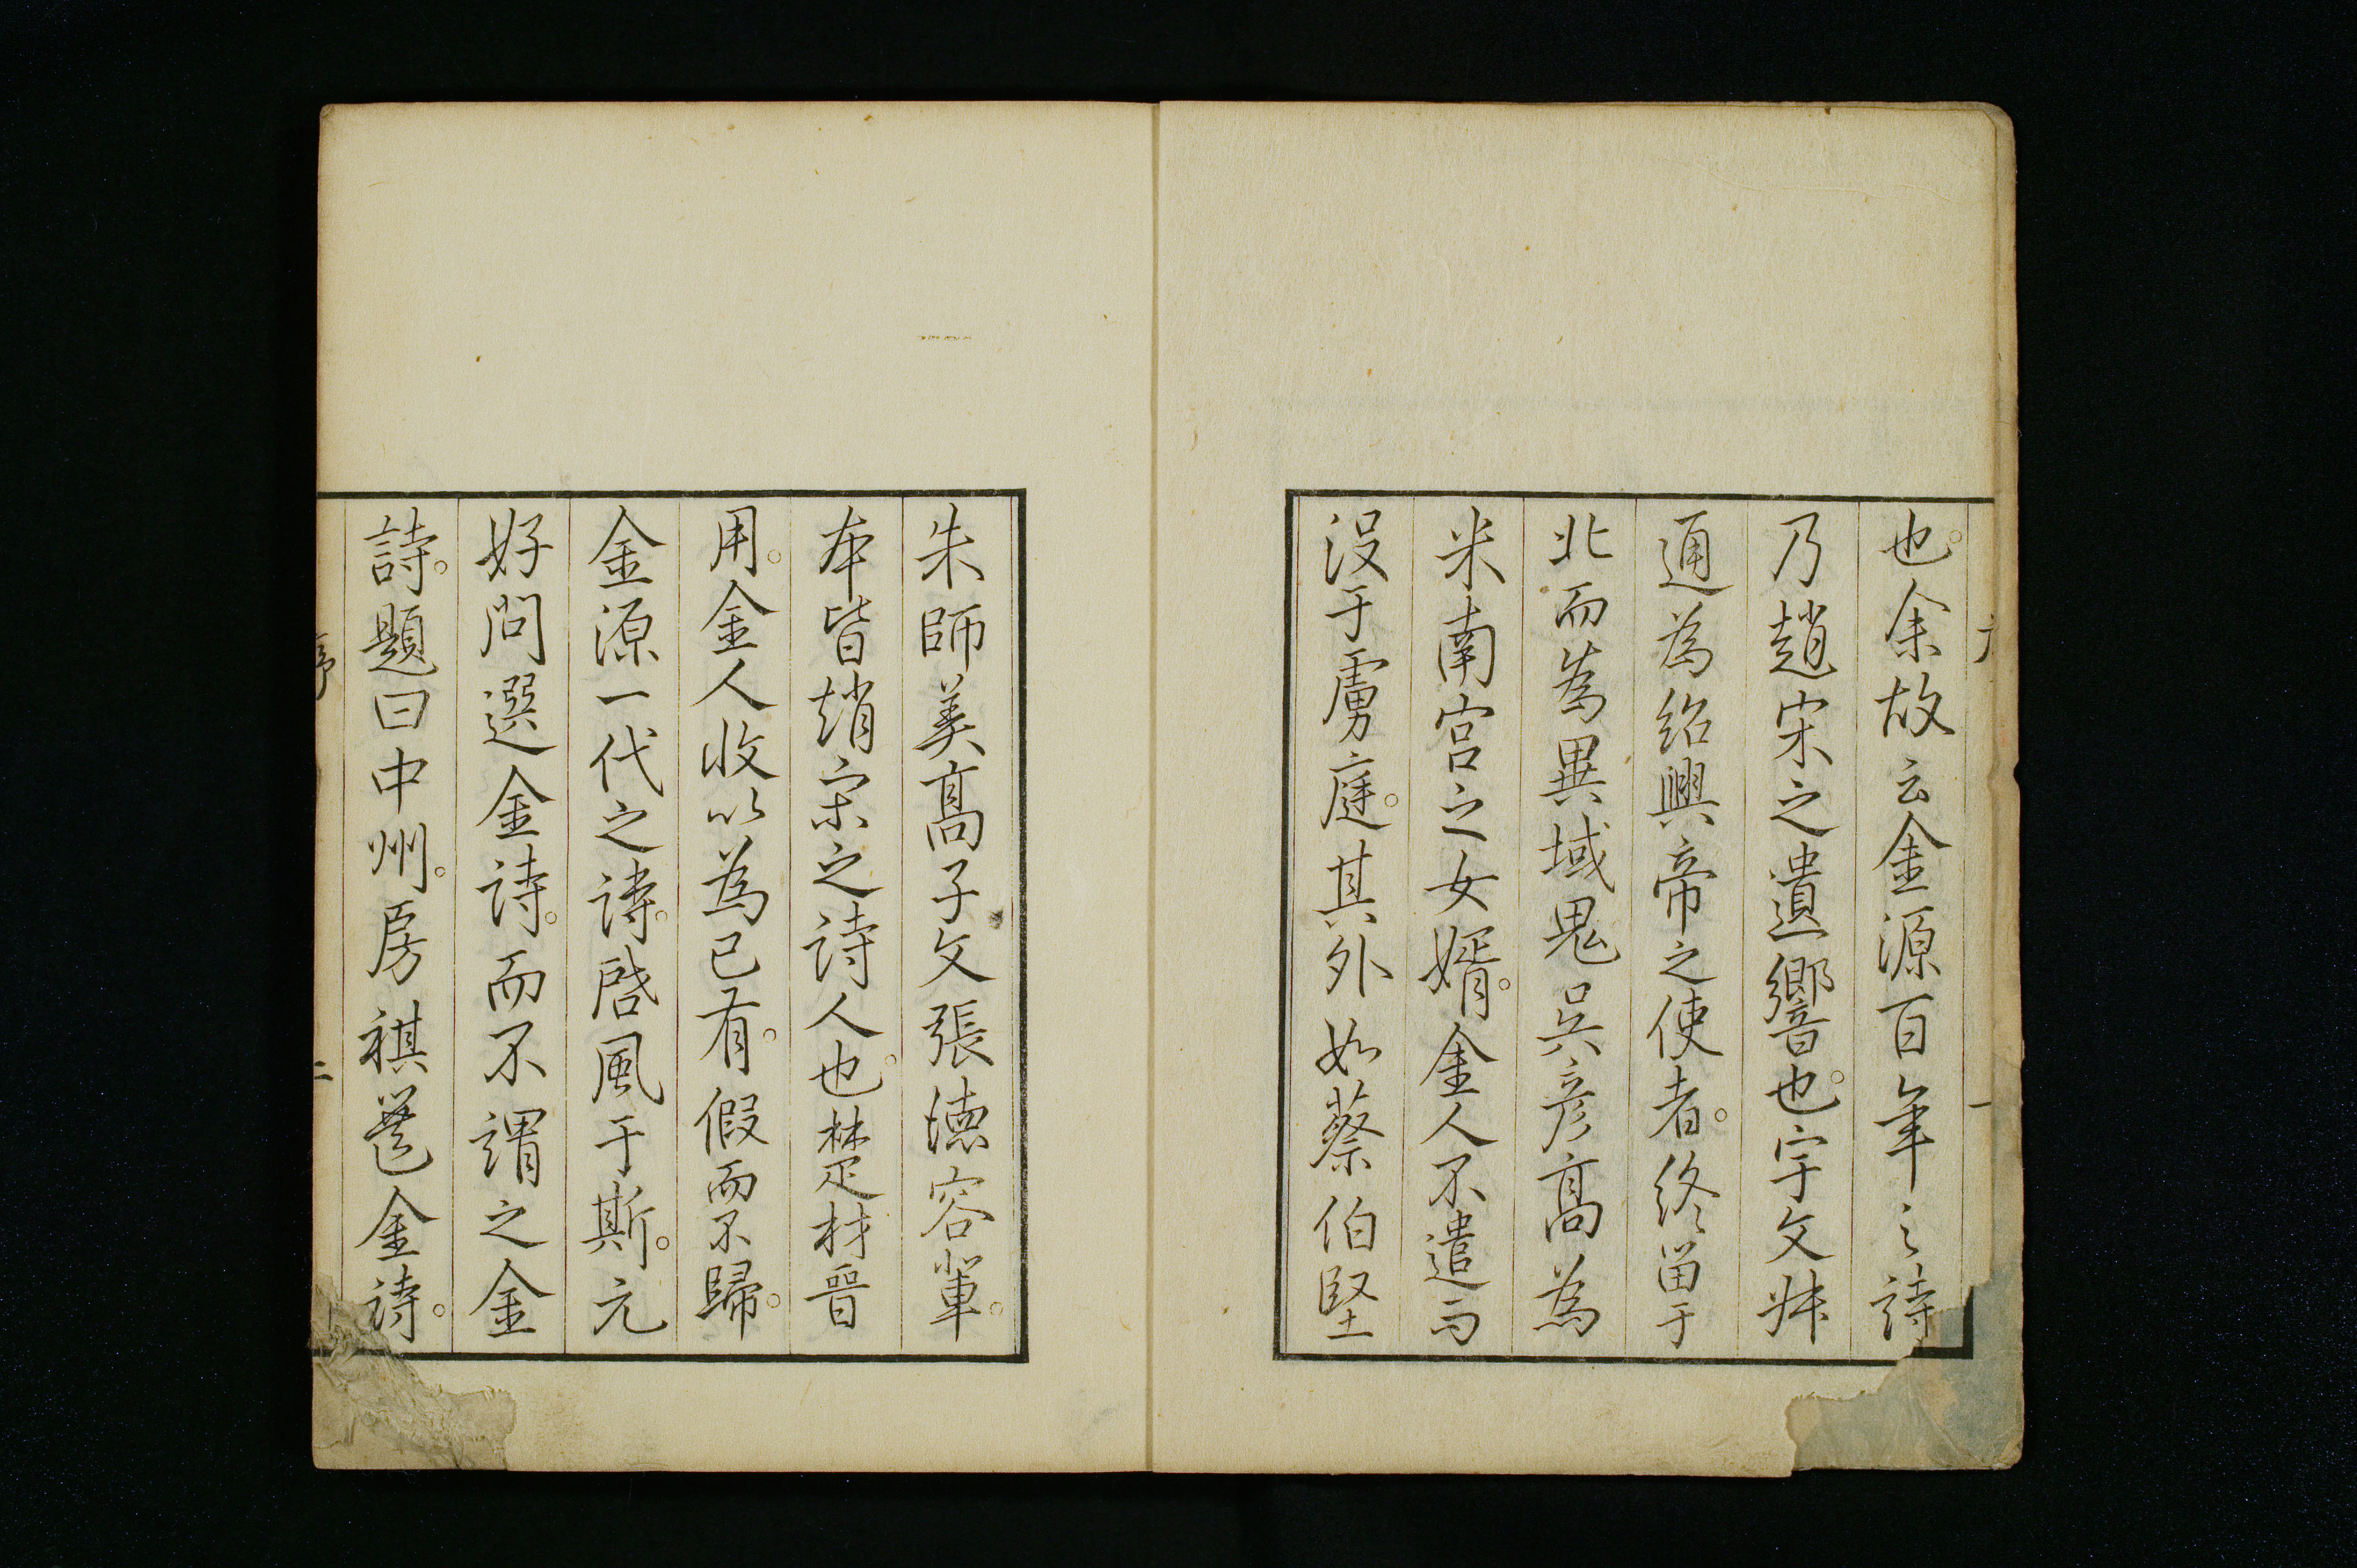 也。余故云金源百年之詩
乃趙宋之遺響也。宇文叔
通為紹興帝之使者。終留于
北而為異域鬼吳彥高為
米南宮之女婿。金人不遣而
沒于虜庭。其外如蔡伯堅
朱師美高子文張德容輩。
本皆趙宋之詩人也。楚材晉
用。金人收以為已有。假而不歸。
金源一代之詩。啓風于斯。元
好問選金詩。而不謂之金
詩。題曰中州。房祺選金詩。
序
二